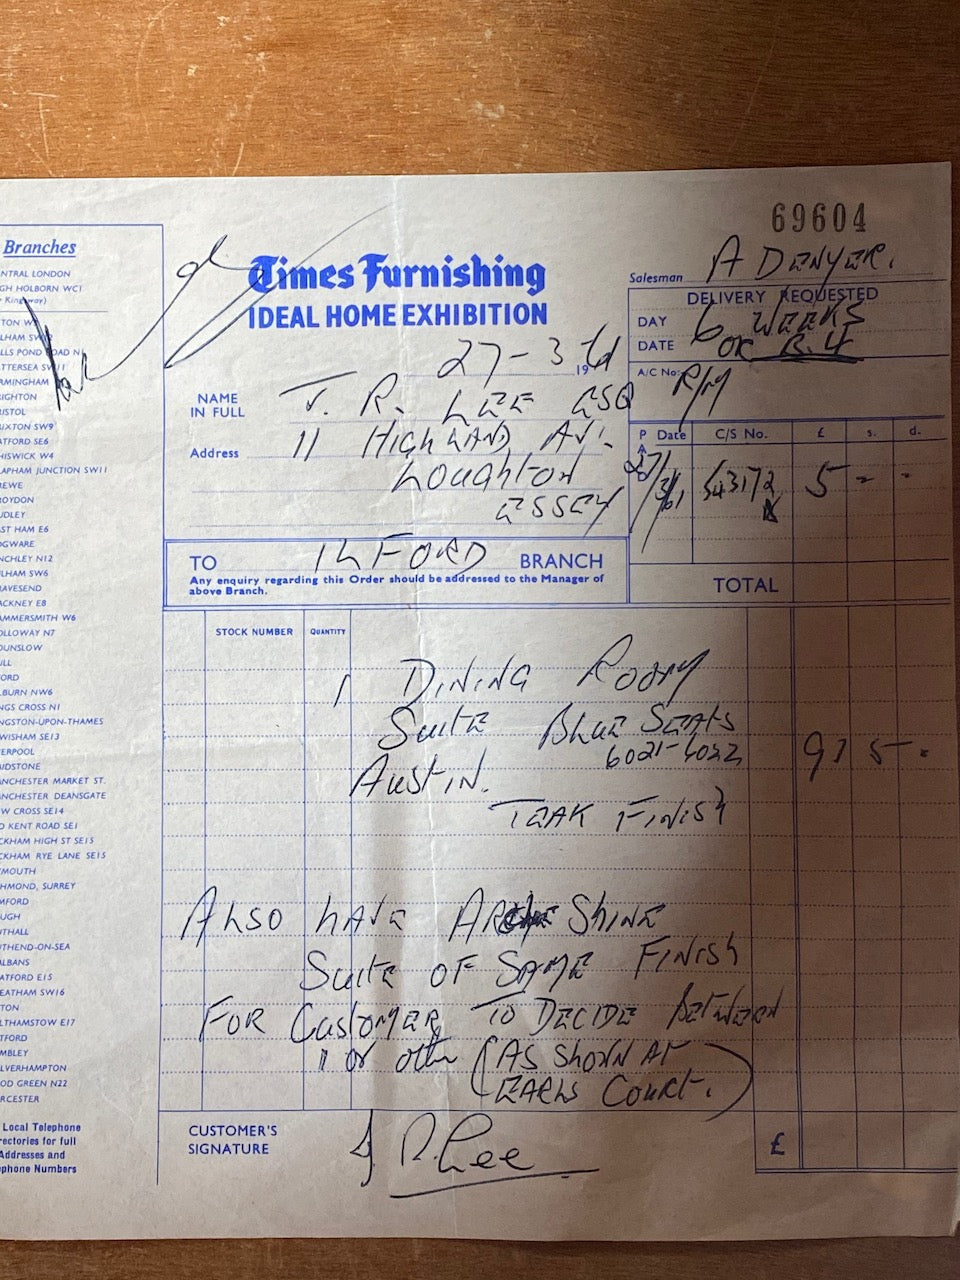 69604
Branches
NTRAL LONDON
GH HOLBORN WC1
Kingsway)
TON W
LHAM SW
LLS POND ROAD N1
TTERSEA SW11
RMINGHAM
IGHTON
ISTOL
IXTON SW9
ATFORD SE6
HISWICK W4
APHAM JUNCTION SW11
EWE
OYDON
UDLEY
ST HAM E6
DGWARE
NCHLEY N12
LHAM SW6
RAVESEND
ACKNEY E8
AMMERSMITH W6
OLLOWAY N7
OUNSLOW
ULL
FORD
LBURN NW6
NGS CROSS N1
NGSTON-UPON-THAMES
WISHAM SE13
ERPOOL
UDSTONE
ANCHESTER MARKET ST.
ANCHESTER DEANSGATE
W CROSS SE14
D KENT ROAD SE1
CKHAM HIGH ST SE15
CKHAM RYE LANE SE15
MOUTH
HMOND, SURREY
MFORD
UGH
UTHALL
UTHEND-ON-SEA
ALBANS
ATFORD E15
EATHAM SW16
TON
LTHAMSTOW E17
TFORD
MBLEY
LVERHAMPTON
OD GREEN N22
RCESTER
Local Telephone
rectories for full
Addresses and
phone Numbers
Times Furnishing
IDEAL HOME EXHIBITION
Salesman A DENYER.
DELIVERY REQUESTED
DAY 6 WEEKS
DATE OR B.4
A/C No: P/M
27-3 1961
NAME IN FULL J. R. LEE ESQ
Address 11 HIGHLAND AV.
LOUGHTON
ESSEX
PAID Date C/S No. £ s. d.
27/3/61 543172 5 - -
TOTAL
TO ILFORD BRANCH
Any enquiry regarding this Order should be addressed to the Manager of
above Branch.
STOCK NUMBER QUANTITY
1 DINING ROOM
SUITE BLUE SEATS
6021-6022
AUSTIN. 93 5 -
TEAK FINISH
ALSO HAVE SHINE
SUITE OF SAME FINISH
FOR CUSTOMER TO DECIDE BETWEEN
1 OR OTHER (AS SHOWN AT
EARLS COURT.)
CUSTOMER'S
SIGNATURE J R. Lee
£